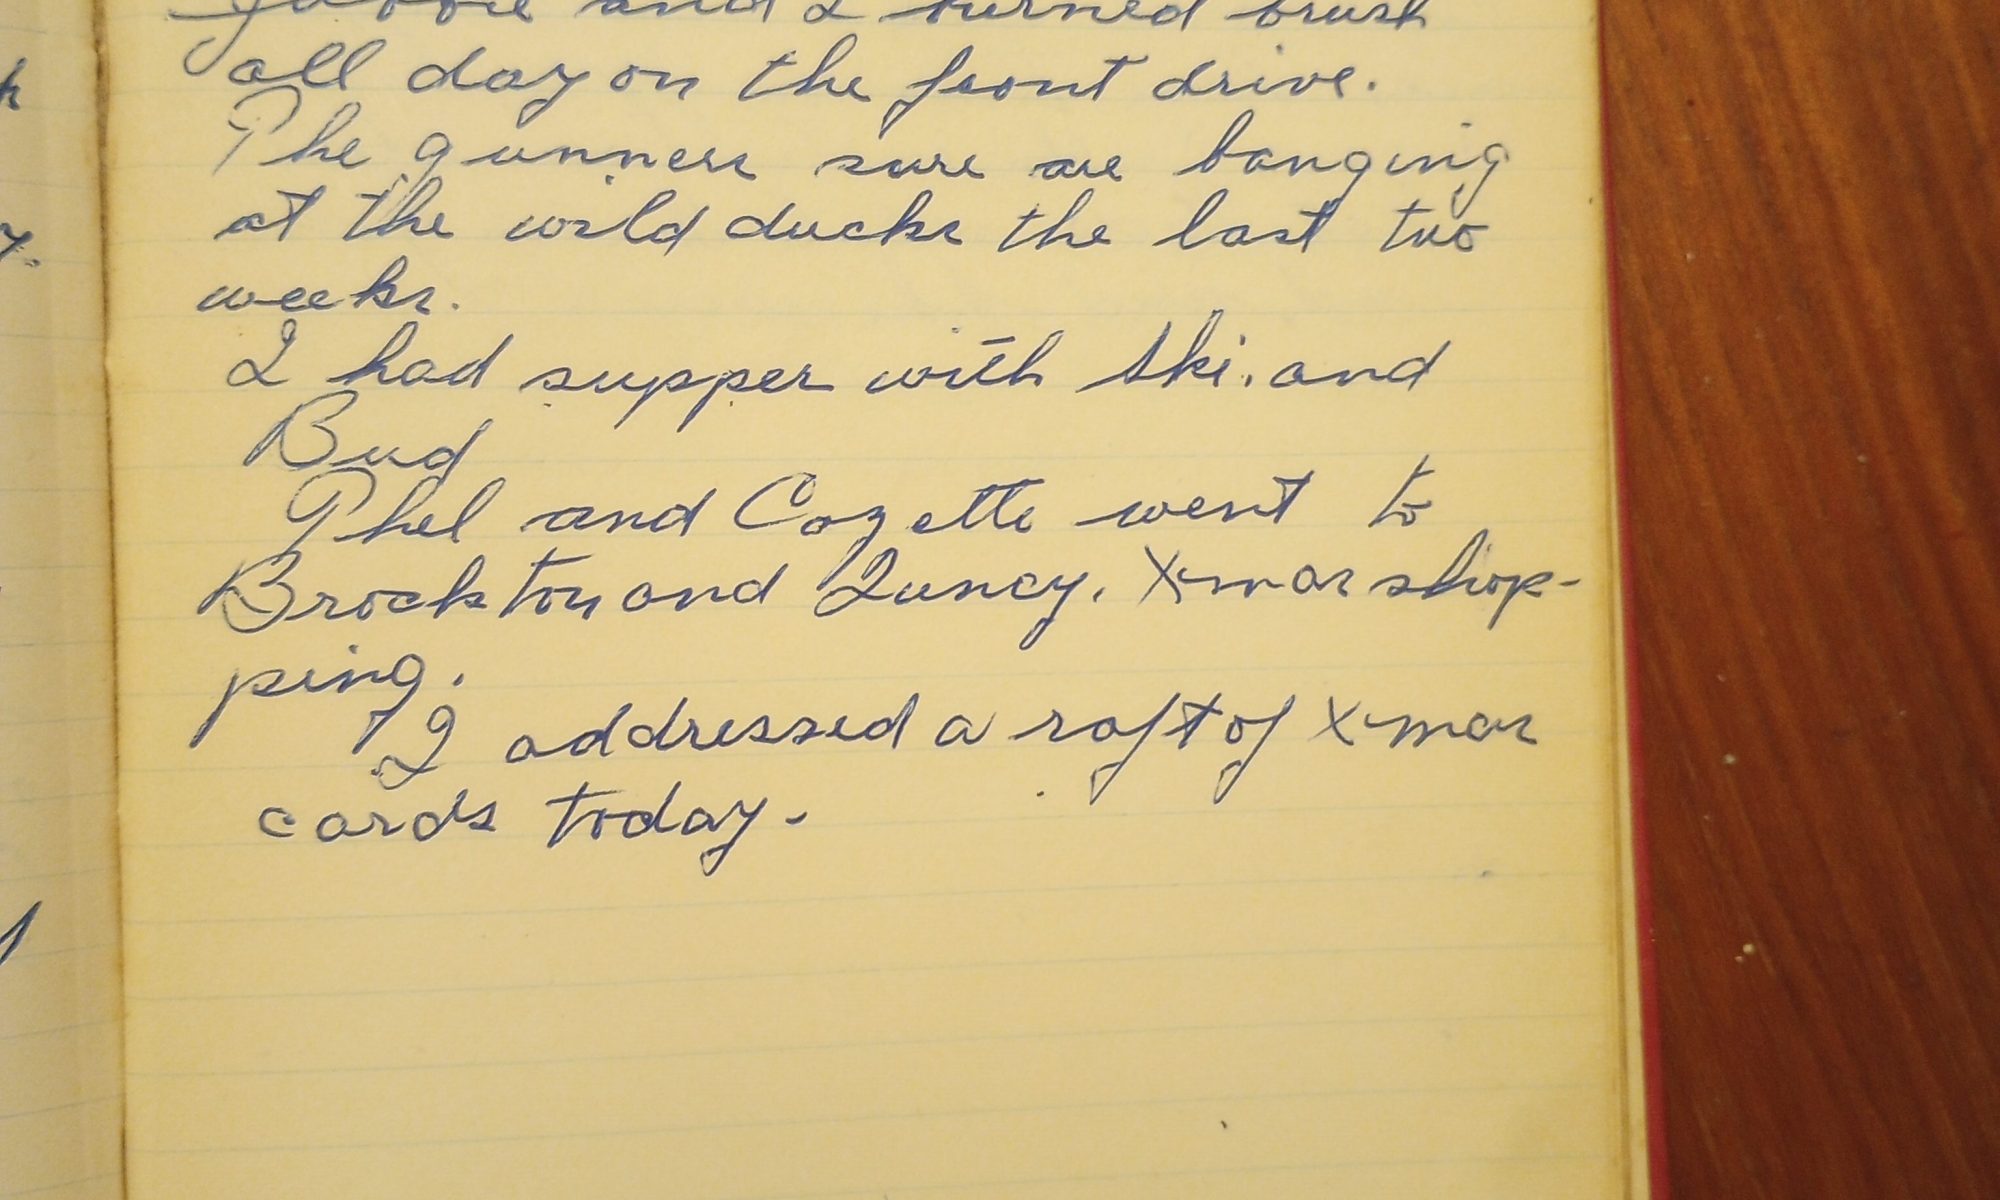 and I burned brush
all day on the front drive.
The gunners sure are banging
at the wild ducks the last two
weeks.
I had supper with Ski. and
Bud
Thel and Cozette went to
Brockton and Quncy. X-mas shop-
ping.
I addressed a raft of X-mas
cards today.